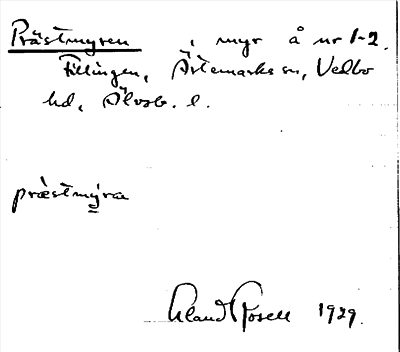 Prästmyren, myr å nr 1-2.
Fillingen, Ärtemarks sn, Vedbo
hd, Älvsb. l.
præ̀stmýræ
Rosell 1929.